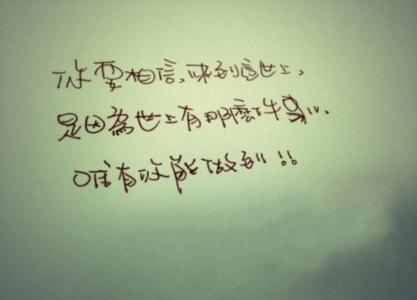 你要相信,來到這世上,
是因為世上有那麼件事...
唯有你能做到!!